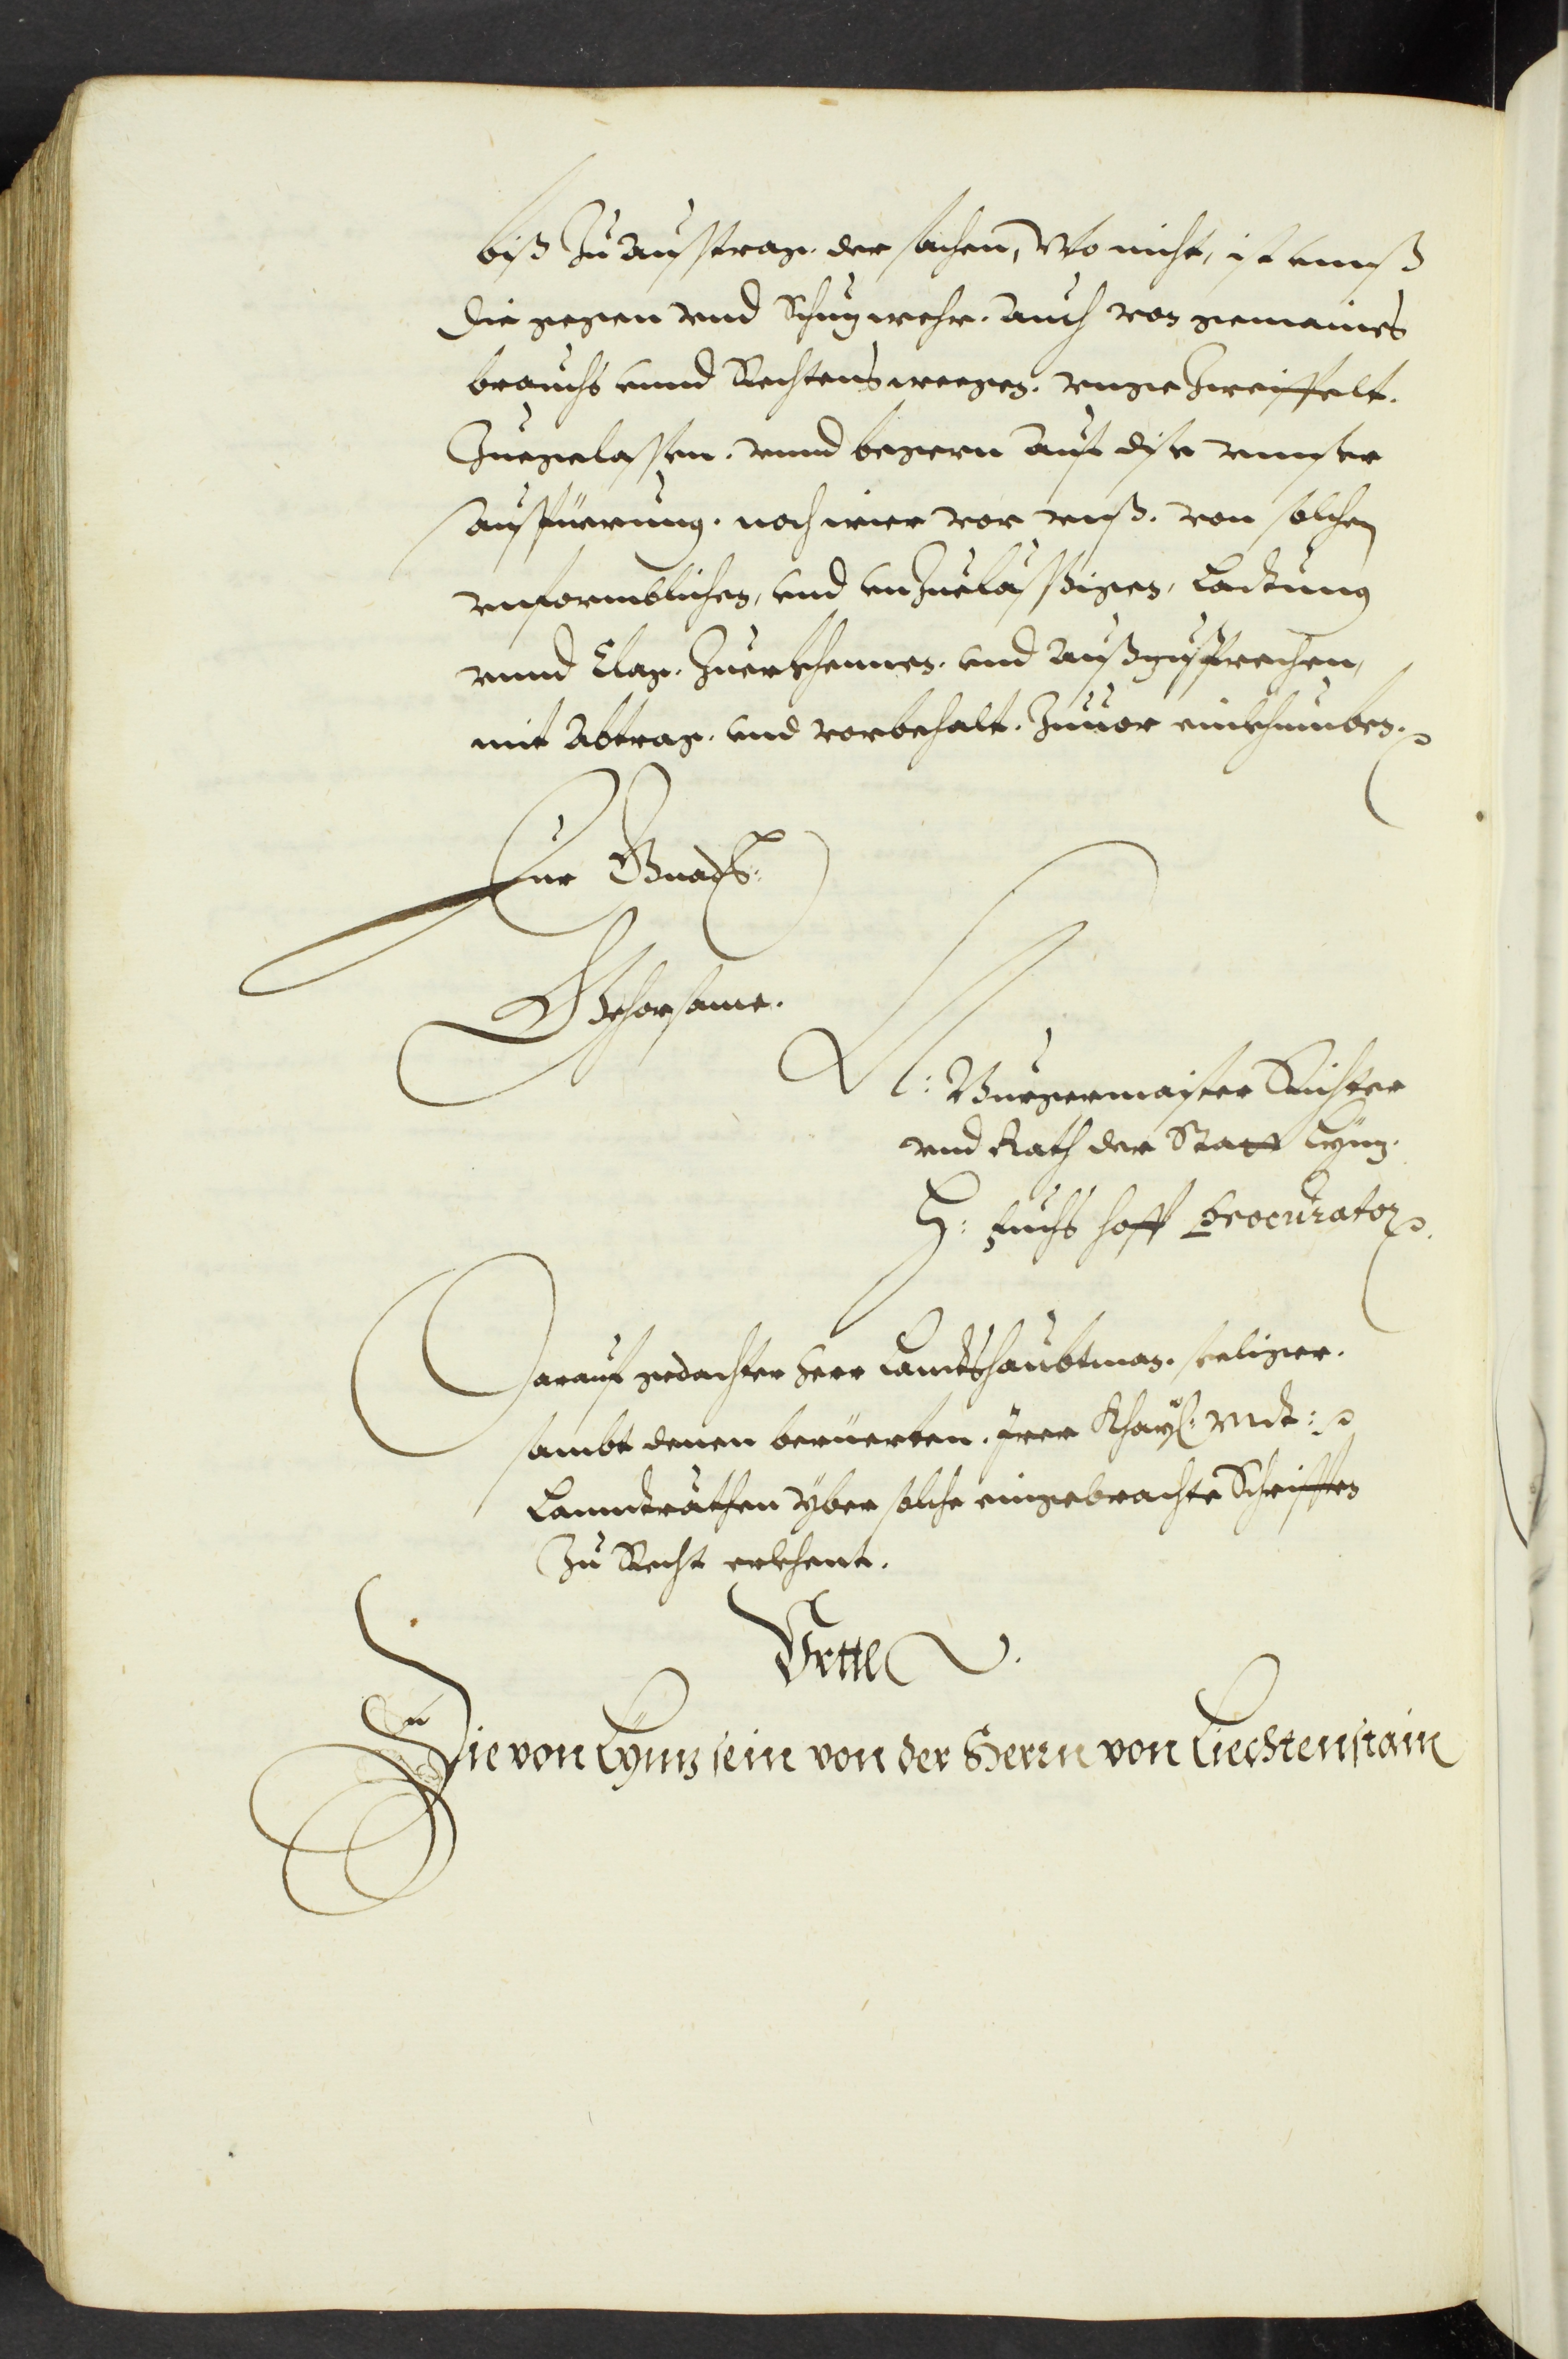 biß Zu außtrag. der sachen, Wo nicht, ist vnnß
die gegen vnd Schuzwehr. auch von gemaines
brauchs vnnd Rechtens weegen. vngezweiffelt.
Zuegelassen. vnnd begern auf dise vnnser
außfüerung. noch wie vor vnß. von solchen
vnformblichen, vnd vnzueläßigen, Ladtung
vnnd Clag. Zuerkhennen. vnd außzusprechen,
mit Abtrag. vnd vorbehalt. Zuuor einkhumben.
Eur Gnad:
Gehorsame.
N: Burgermaister Richter
vnd Rath der Statt Lynz.
H: Fuchs hoff Procurator.
Darauf gedachter Herr Landtshaubtman. seeliger.
sambt denen berüerten. Irer Khay: Mt:
Lanndträthen yber solche eingebrachte Schrifften
Zu Recht erkhent.
Vrttl.
Die von Lynnz sein von der Herrn von Liechtenstain